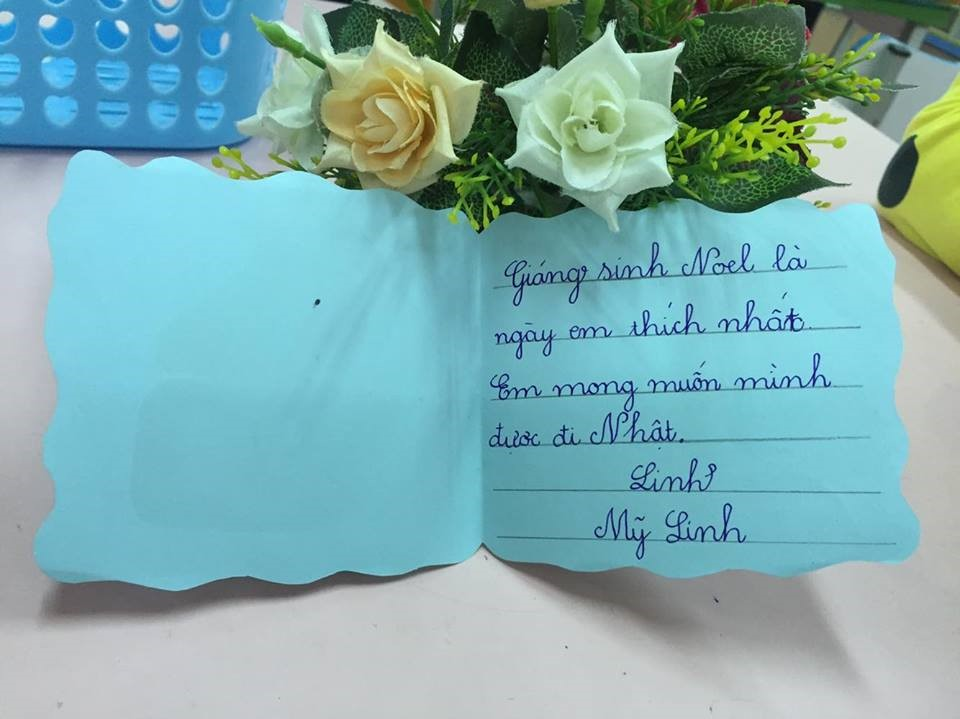 Giáng sinh Noel là
ngày em thích nhất.
Em mong muốn mình
được đi Nhật.
Linh
Mỹ Linh